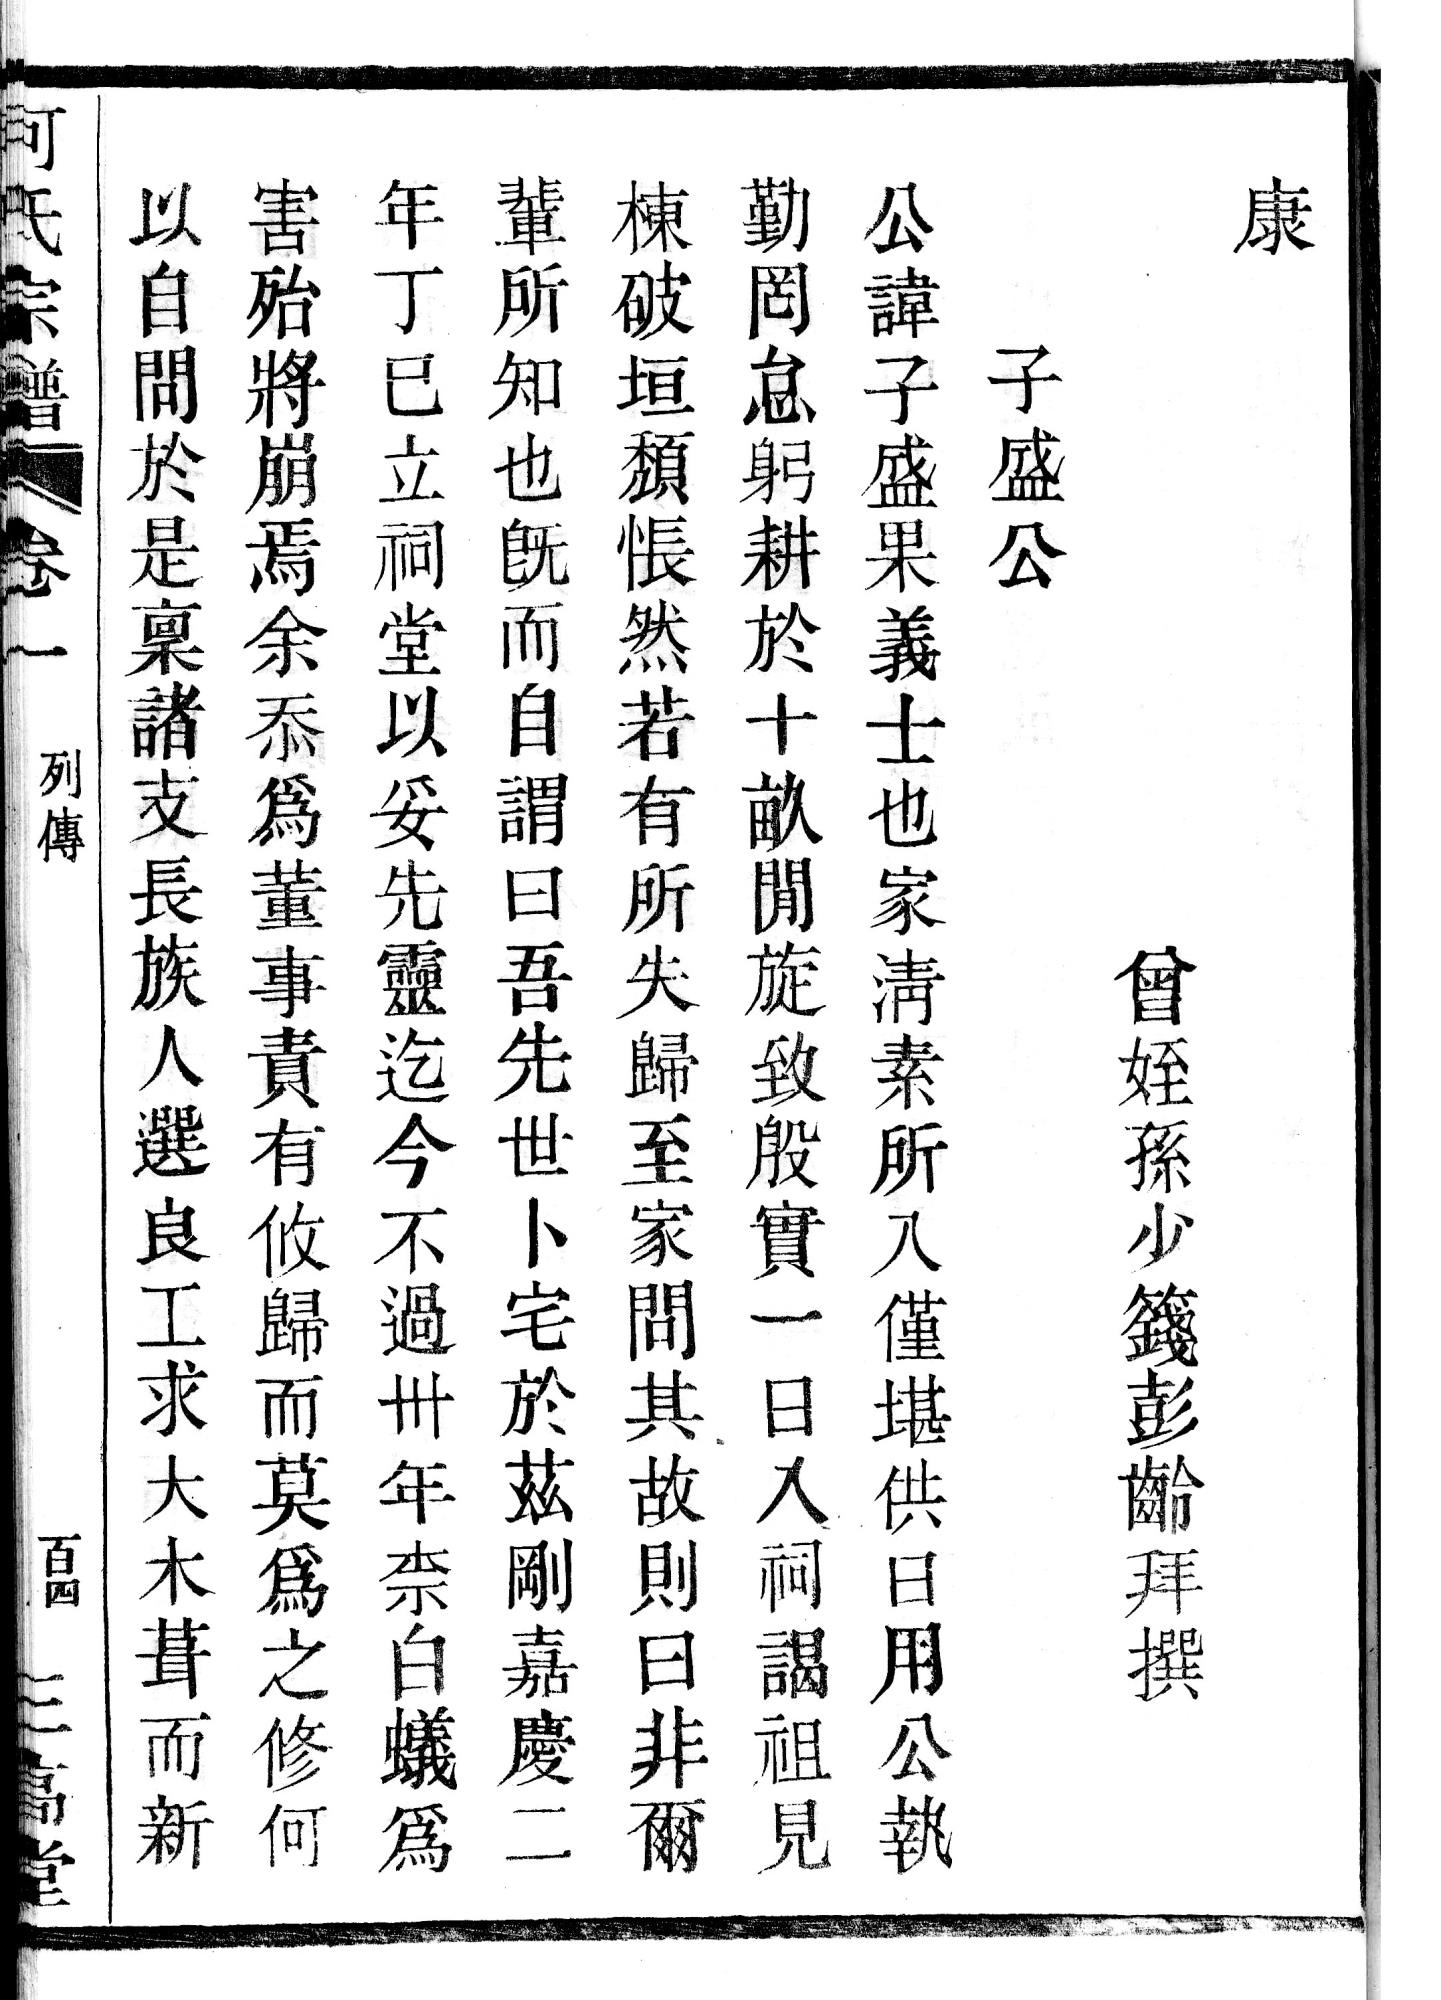 康
曾姪孫少籛彭齡拜撰
子盛公
公諱子盛果義士也家淸素所入僅堪供日用公執
勤罔怠躬耕於十畝閒旋致殷實一日入祠謁祖見
棟破垣頹悵然若有所失歸至家問其故則曰非爾
輩所知也旣而自謂曰吾先世卜宅於茲剛嘉慶二
年丁巳立祠堂以妥先靈迄今不過卅年柰白蟻爲
害殆將崩焉余忝爲董事責有攸歸而莫爲之修何
以自問於是稟諸支長族人選良工求大木葺而新
何氏宗譜 卷一 列傳 百四 三高堂